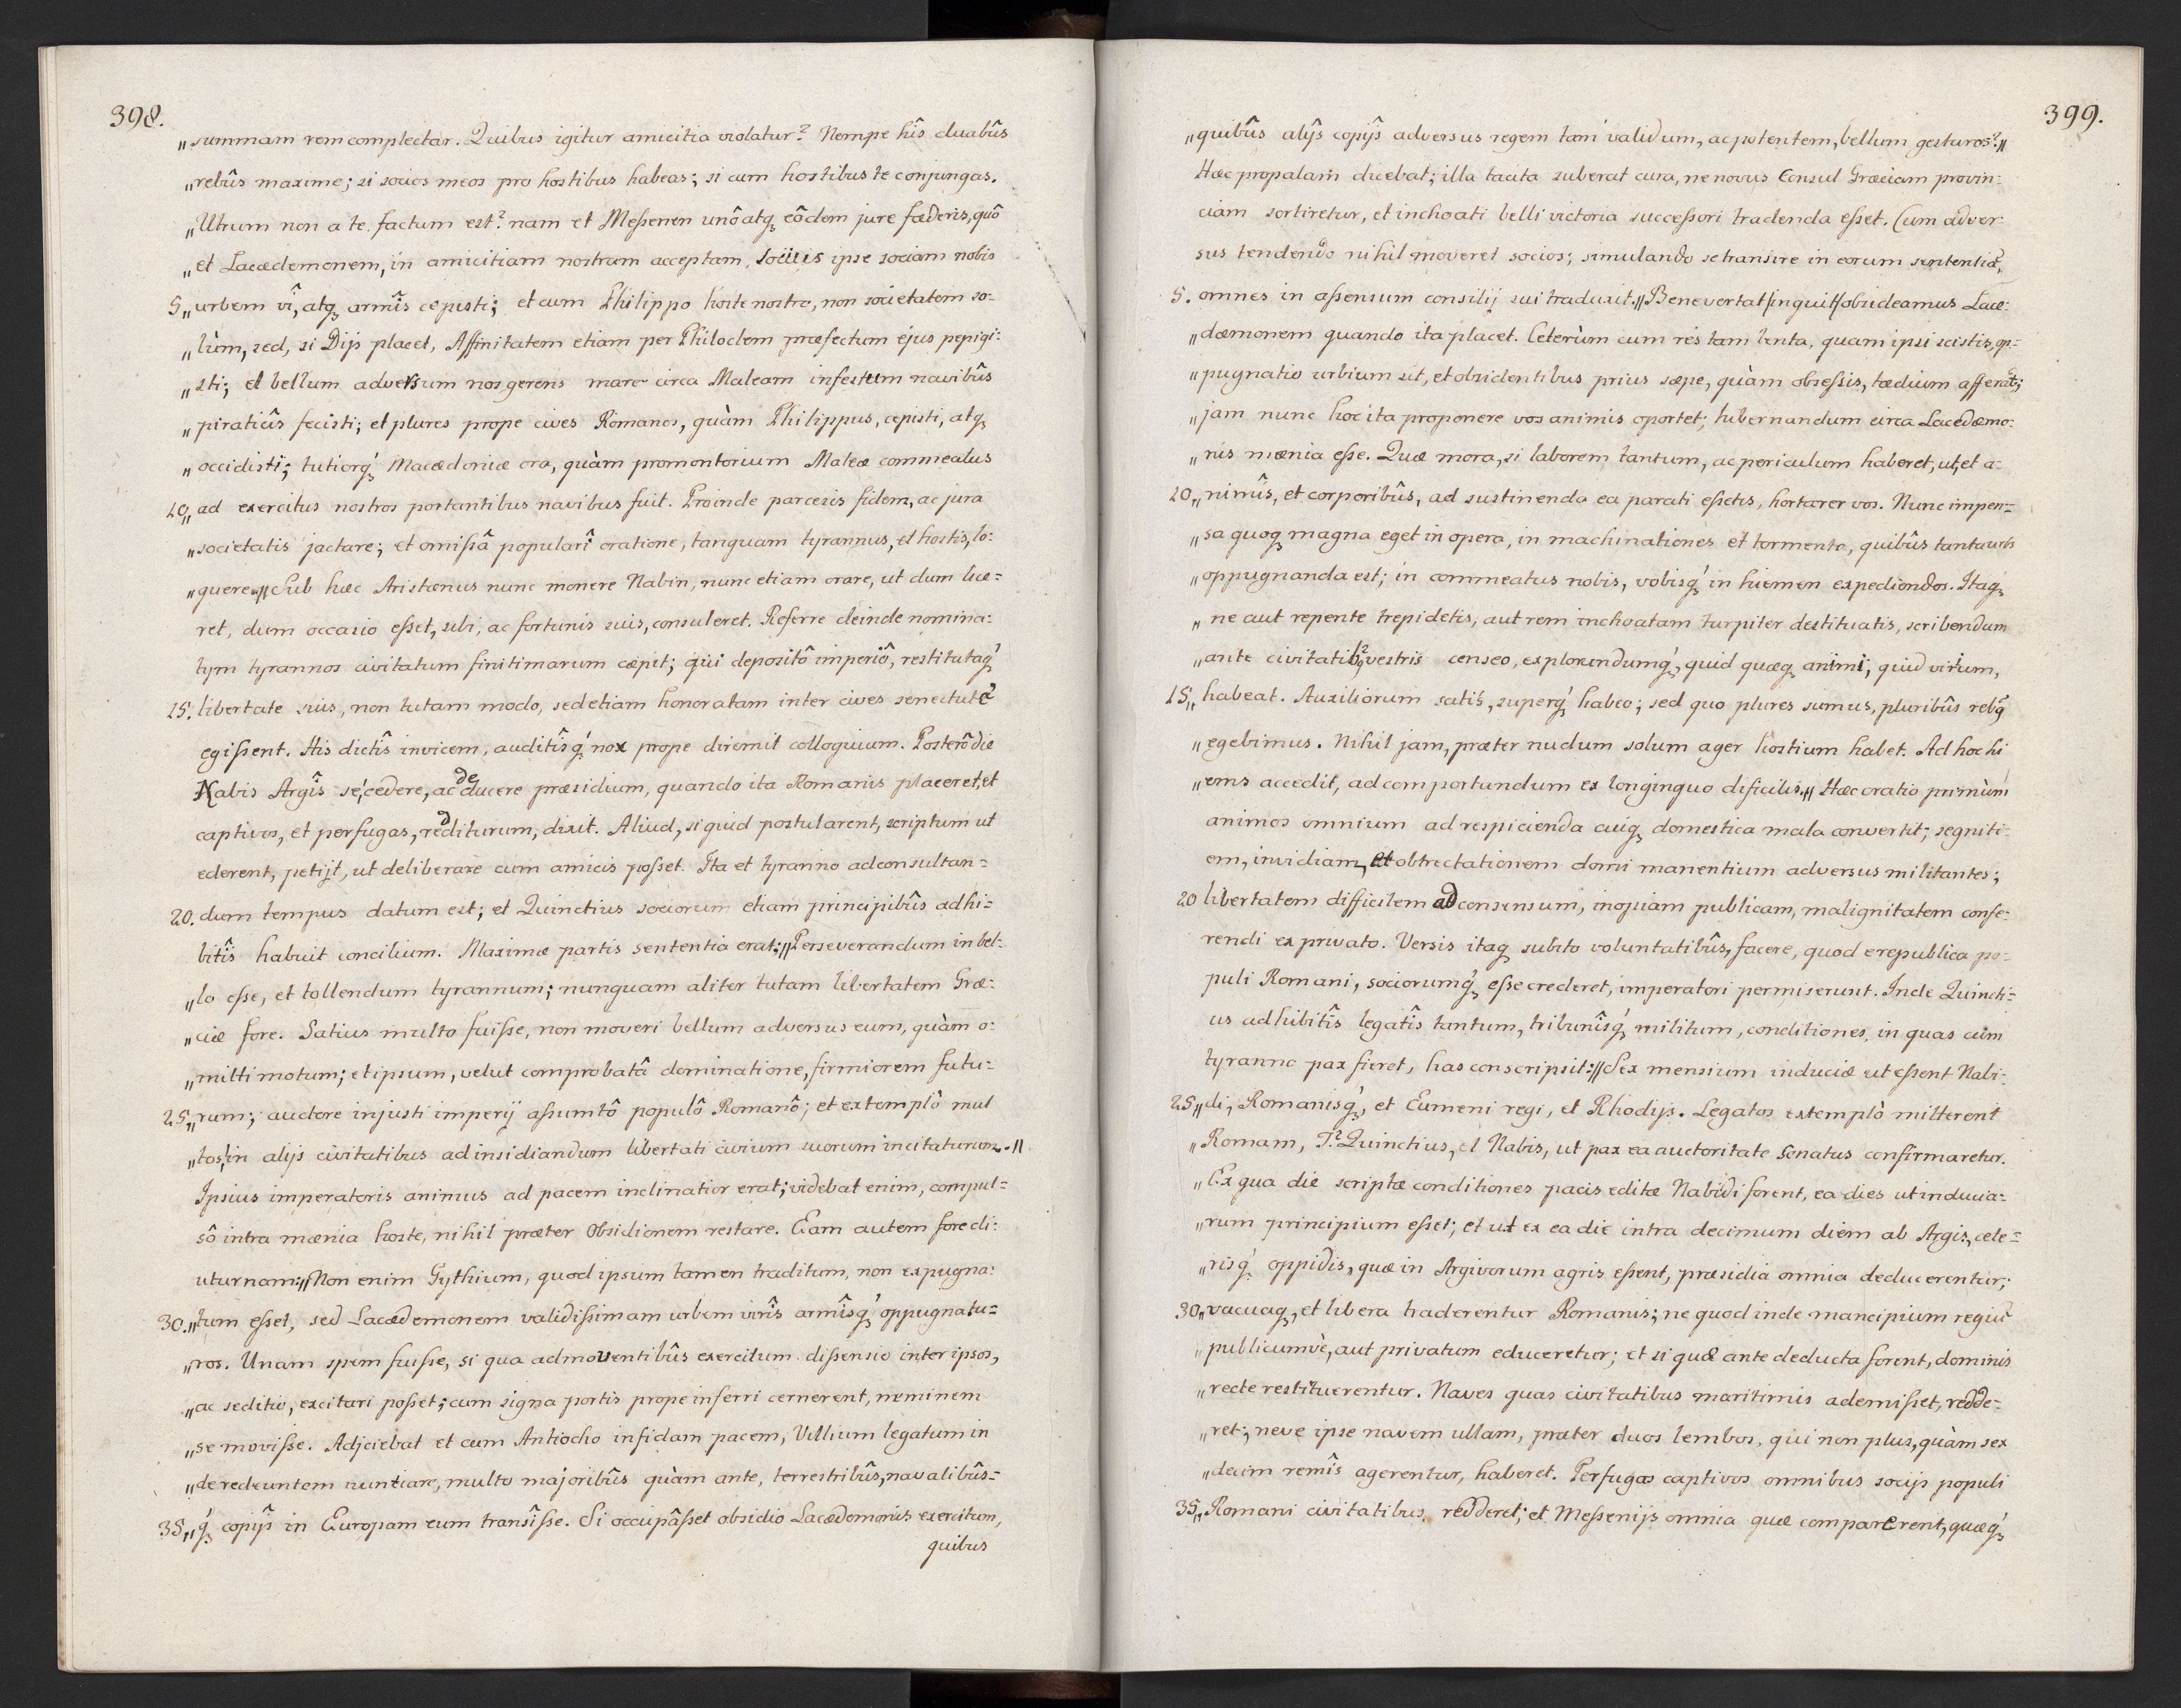 398.
„summam rem complectar. Quibus igitur amicitia violatur? Nempe hîs duabûs
„rebûs maxime; si socios meos pro hostibus habeas; si cum hostibus te conjungas.
„Utrum non a te factum est? nam et Meßenen unô atq₃ eôdem jure fœderis, quô
„et Lacædemonem, in amicitiam nostram acceptam, socius ipse sociam nobis
5„urbem vî, atq₃ armîs cepisti; et cum Philippo hoste nostro, non societatem so=
„lùm, sed, si Dijs placet, Affinitatem etiam per Philoclem præfectum ejus pepigi=
„sti; et bellum adversum nos gerens mare circa Maleam infestum navibûs
„piraticîs fecisti; et plures prope cives Romanos, quàm Philippus, cepisti, atq₃
„occidisti; tutiorq́₃ Macædoniæ ora, quàm promontorium Maleæ commeatus
10„ad exercitus nostros portantibus navibus fuit. Proinde parcesis fidem, ac jura
„societatis jactare; et omißâ popularî oratione, tanquam tyrannus, et hostis, lo=
„quere.„ Sub hæc Aristænus nunc monere Nabin, nunc etiam orare, ut dum lice=
ret, dum occasio eßet, sibi, ac fortunis suis, consuleret. Referre deinde nomina=
tym tyrannos civitatum finitimarum cæpit; qui depositô imperiô, restitutaq́₃
15. libertate suis, non tutam modo, sed etiam honoratam inter cives senectutẽ
egißent. His dictîs invicem, auditîsq́₃ nox prope diremit colloquium. Posterô die
Nabis Argîs se, cedere, ac deducere præsidium, quando ita Romanis placeret, et
captivos, et perfugas, redditurum, dixit. Aliud, si quid postularent, scriptum ut
ederent, petijt, ut deliberare cum amicis poßet. Ita et tyranno ad consultan=
20. dum tempus datum est; et Quinctius sociorum etiam principibûs adhi=
bitîs habuit concilium. Maximæ partis sententia erat; „Perseverandum in bel=
„lo eße, et tollendum tyrannum; nunquam aliter tutam libertatem Græ=
„ciæ fore. Satius multo fuiße, non moveri bellum adversus eum, quàm o=
„mitti motum; et ipsum, velut comprobatâ dominatione, firmiorem futu=
25„rum; auctore injusti imperij aßumtô populô Romanô; et extemplò mul
„tos, in alijs civitatibus ad insidiandum libertati civium suorum incitaturum.„
Ipsius imperatoris animus ad pacem inclinatior erat; videbat enim, compul=
sô intra mœnia hoste, nihil præter Obsidionem restare. Eam autem fore di=
uturnam: „Non enim Gythium, quod ipsum tamen traditum, non expugna=
30.„tum eßet, sed Lacædemonem validißimam urbem virîs armîsq́₃ oppugnatu=
„ros. Unam spem fuiße, si qua admoventibûs exercitum dißensio inter ipsos,
„ac seditio, excitari poßet; cum signa portis prope inferri cernerent, neminem
„se moviße. Adjciebat et cum Antiocho infidam pacem, Villium legatum in
„de redeuntem nuntiare, multo majoribûs quàm ante, terrestribûs, navalibûs=
35„q́₃ copijs in Europam eum transîße. Si occupâßet obsidio Lacædemonis exercitum,
quibus
399.
„quibûs alijs copijs adversus regem tam validum, ac potentem, bellum gesturos?„
Hæc propalam dicebat; illa tacita suberat cura, ne novus Consul Græciam provin=
ciam sortiretur, et inchoati belli victoria succeßori tradenda eßet. Cum adver=
sus tendendo nihil moveret socios; simulando se transire in eorum sententiã,
5. omnes in aßensum consilij sui traduxit. „Bene vertat (inquit) obsideamus Lace=
„dæmonem quando ita placet. Ceterùm cum res tam lenta, quam ipsi scistis, op=
„pugnatio urbium sit, et obsidentibus prius sæpe, quàm obseßis, tædium afferat;
„jam nunc hoc ita proponere vos animis oportet; hibernandum circa Lacedæmo=
„nis mænia eße. Quæ mora, si laborem tantum, ac periculum haberet, ut, et a=
10„nimîs, et corporibûs, ad sustinenda ea parati eßetis, hortarer vos. Nunc impen=
„sa quoq₃ magna eget in opera, in machinationes et tormenta, quibûs tanta urbs
„oppugnanda est; in commeatus nobis, vobisq́₃ in hiemen expediendos. Itaq₃
„ne aut repente trepidetis, aut rem inchoatam turpiter destituatis, scribendum
„ante civitatibq₃ vestris censeo, explorandumq́₃, quid quæq₃ animi, quid virium,
15„habeat. Auxiliorum satis, superq́₃ habeo; sed quo plures sumus, pluribûs rebq₃
„egebimus. Nihil jam, præter nudum solum ager hostium habet. Ad hoc hi
„ems accedit, ad comportandum ex longinquo dificilis.„ Hæc oratio primùm
animos omnium ad respicienda cuiq₃ domestica mala convertit; segniti=
em, invidiam, et obtrectationem domi manentium adversus militantes;
20 libertatem difficilem ad consensum, inopiam publicam, malignitatem confe=
rendi ex privato. Versis itaq₃ subito voluntatibûs, facere, quod e republica po=
puli Romani, sociorumq́₃ eße crederet, imperatori permiserunt. Inde Quincti=
us adhibitîs legatîs tantum, tribunîsq́₃ militum, conditiones, in quas cum
tyranno pax fieret, has conscripsit: „Sex mensium induciæ ut eßent Nabi=
25„di, Romanisq́₃, et Eumeni regi, et Rhodijs. Legatos extemplò mitterent
„Romam, T. Quinctius, et Nabis, ut pax ea auctoritate Senatus confirmaretur.
„Ex qua die scriptæ conditiones pacis editæ Nabidi forent, ea dies ut inducia=
„rum principium eßet; et ut ex ea die intra decimum diem ab Argis, cete=
„risq́₃ oppidis, quæ in Argivorum agris eßent, præsidia omnia deducerentur;
30„vacuaq₃, et libera traderentur Romanis; ne quod inde mancipium regiũ
„publicumvè, aut privatum educeretur; et si quæ ante deducta forent, dominis
„recte restituerentur. Naves quas civitatibus maritimis ademißet, redde=
„ret; neve ipse navem ullam, præter duos lembos, qui non plus, quàm sex
„decim remîs agerentur, haberet. Perfugas captivos omnibus socijs populi
35„Romani civitatibus redderet; et Meßenijs omnia quæ comparerent, quæq́₃